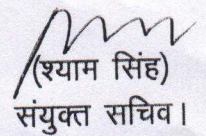 (श्याम सिंह)
संयुक्त सचिव।